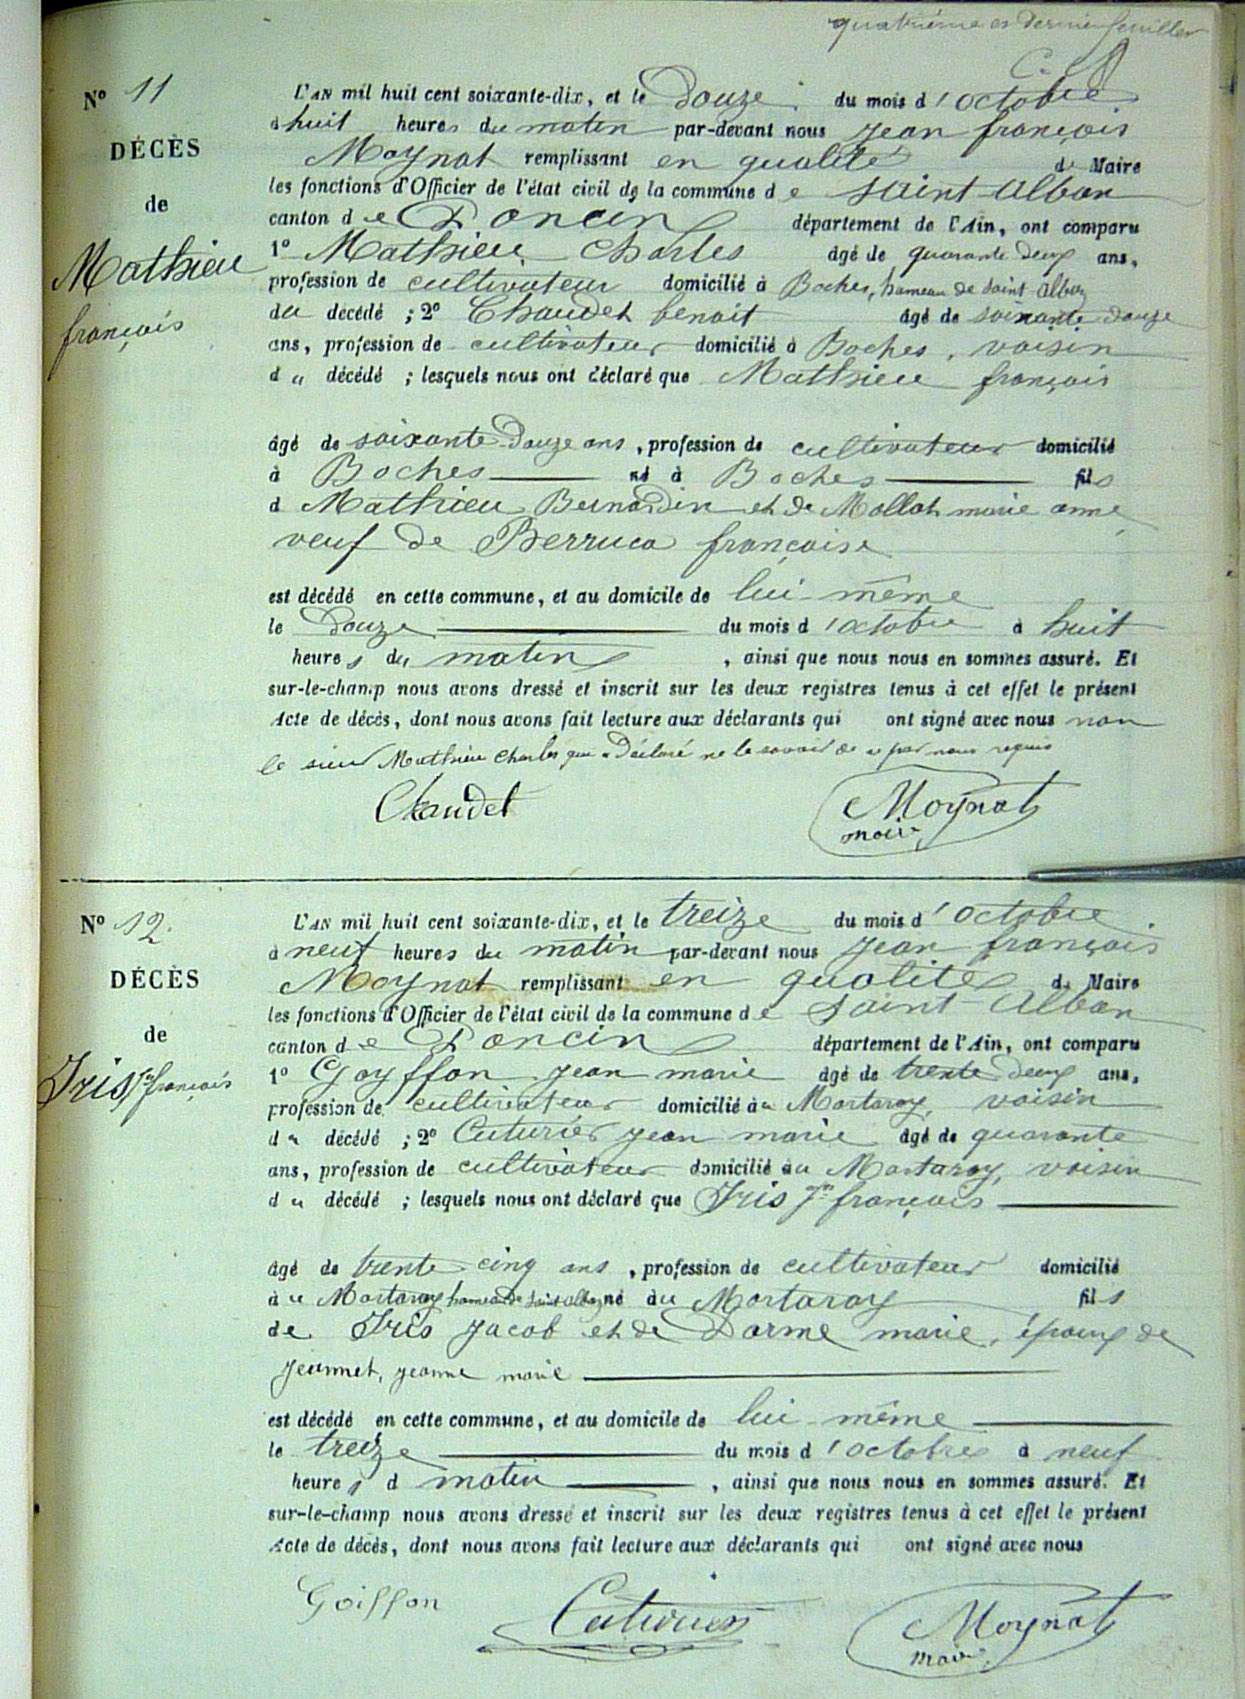 quatrième et dernier feuillet
N° 11
DÉCÈS
de
Mathieu
françois
L'AN mil huit cent soixante-dix, et le Douze du mois d'octobre
à huit heures du matin par-devant nous jean françois
Moynat remplissant en qualité de Maire
les fonctions d'Officier de l'état civil de la commune de saint-alban
canton de Poncin département de l'Ain, ont comparu
1° Mathieu Charles âgé de quarante deux ans,
profession de cultivateur domicilié à Boches, hameau de saint alban
du décédé ; 2° Chaudet benoit âgé de soixante douze
ans, profession de cultivateur domicilié à Boches, voisin
du décédé ; lesquels nous ont déclaré que Mathieu françois
âgé de soixante-Douze ans, profession de cultivateur domicilié
à Boches né à Boches fils
d Mathieu Bernardin et de Mollat marie anne
veuf de Berruca françoise
est décédé en cette commune, et au domicile de lui-même
le Douze du mois d'octobre à huit
heures du matin, ainsi que nous nous en sommes assuré. Et
sur-le-champ nous avons dressé et inscrit sur les deux registres tenus à cet effet le présent
Acte de décès, dont nous avons fait lecture aux déclarants qui ont signé avec nous non
le sieur Mathieu Charles qui a Déclaré ne le savoir de ce par nous requis
Chaudet Moynat
maire
N° 12
DÉCÈS
de
Iris jn françois
L'AN mil huit cent soixante-dix, et le treize du mois d'octobre
à neuf heures du matin par-devant nous jean françois
Moynat remplissant en qualité de Maire
les fonctions d'Officier de l'état civil de la commune de saint-Alban
canton de Poncin département de l'Ain, ont comparu
1° Goyffon jean marie âgé de trente deux ans,
profession de cultivateur domicilié au Mortaray, voisin
du décédé ; 2° Cuturier jean marie âgé de quarante
ans, profession de cultivateur domicilié au Mortaray, voisin
du décédé ; lesquels nous ont déclaré que Iris jn françois
âgé de trente cinq ans, profession de cultivateur domicilié
au Mortaray hameau de saint alban né au Mortaray fils
de Iris jacob et de Darme marie, époux de
jeunnet, jeanne marie
est décédé en cette commune, et au domicile de lui-même
le treize du mois d'octobre à neuf
heures d matin, ainsi que nous nous en sommes assuré. Et
sur-le-champ nous avons dressé et inscrit sur les deux registres tenus à cet effet le présent
Acte de décès, dont nous avons fait lecture aux déclarants qui ont signé avec nous
Goiffon Cuturier Moynat
maire